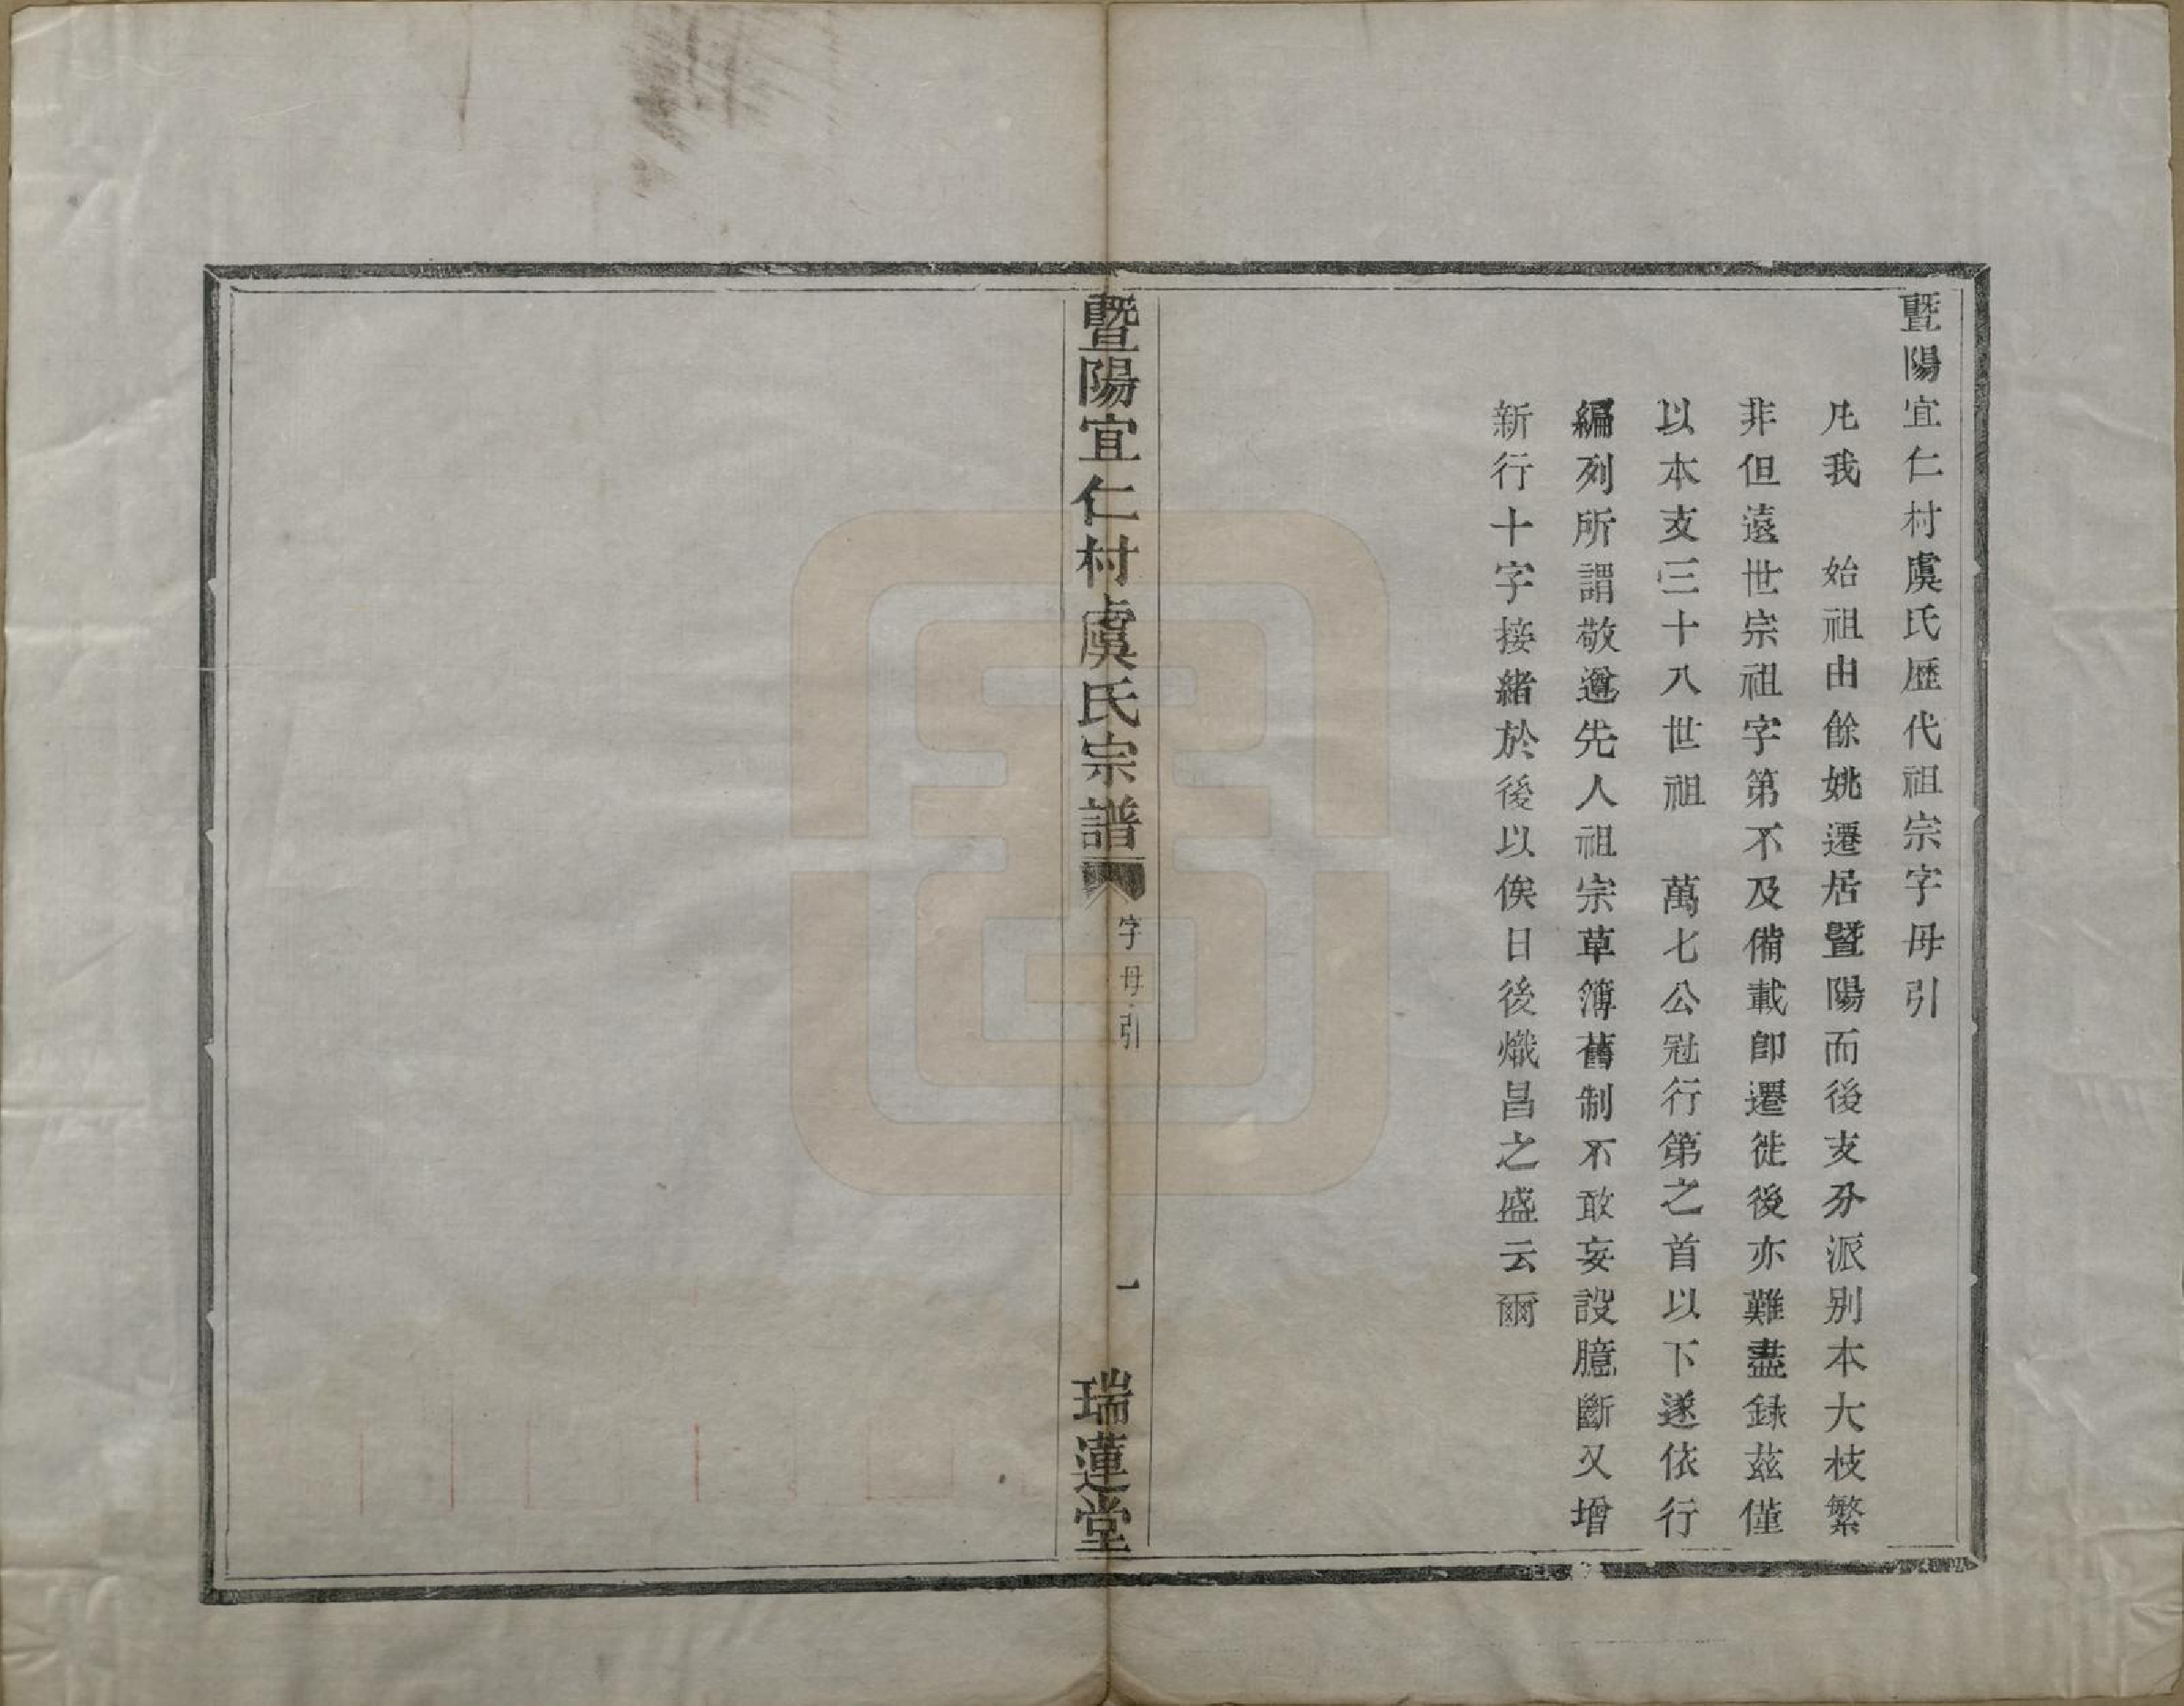 暨陽宜仁村虞氏歷代祖宗字母引
凡我　始祖由餘姚遷居暨陽而後支分派別本大枝繁
非但遠世宗祖字第不及備載卽遷徙後亦難盡錄茲僅
以本支三十八世祖　萬七公冠行第之首以下遂依行
編列所謂敬遵先人祖宗草簿舊制不敢妄設臆斷又增
新行十字接緒於後以俟日後熾昌之盛云爾
暨陽宜仁村虞氏宗譜
字母引
一
瑞蓮堂